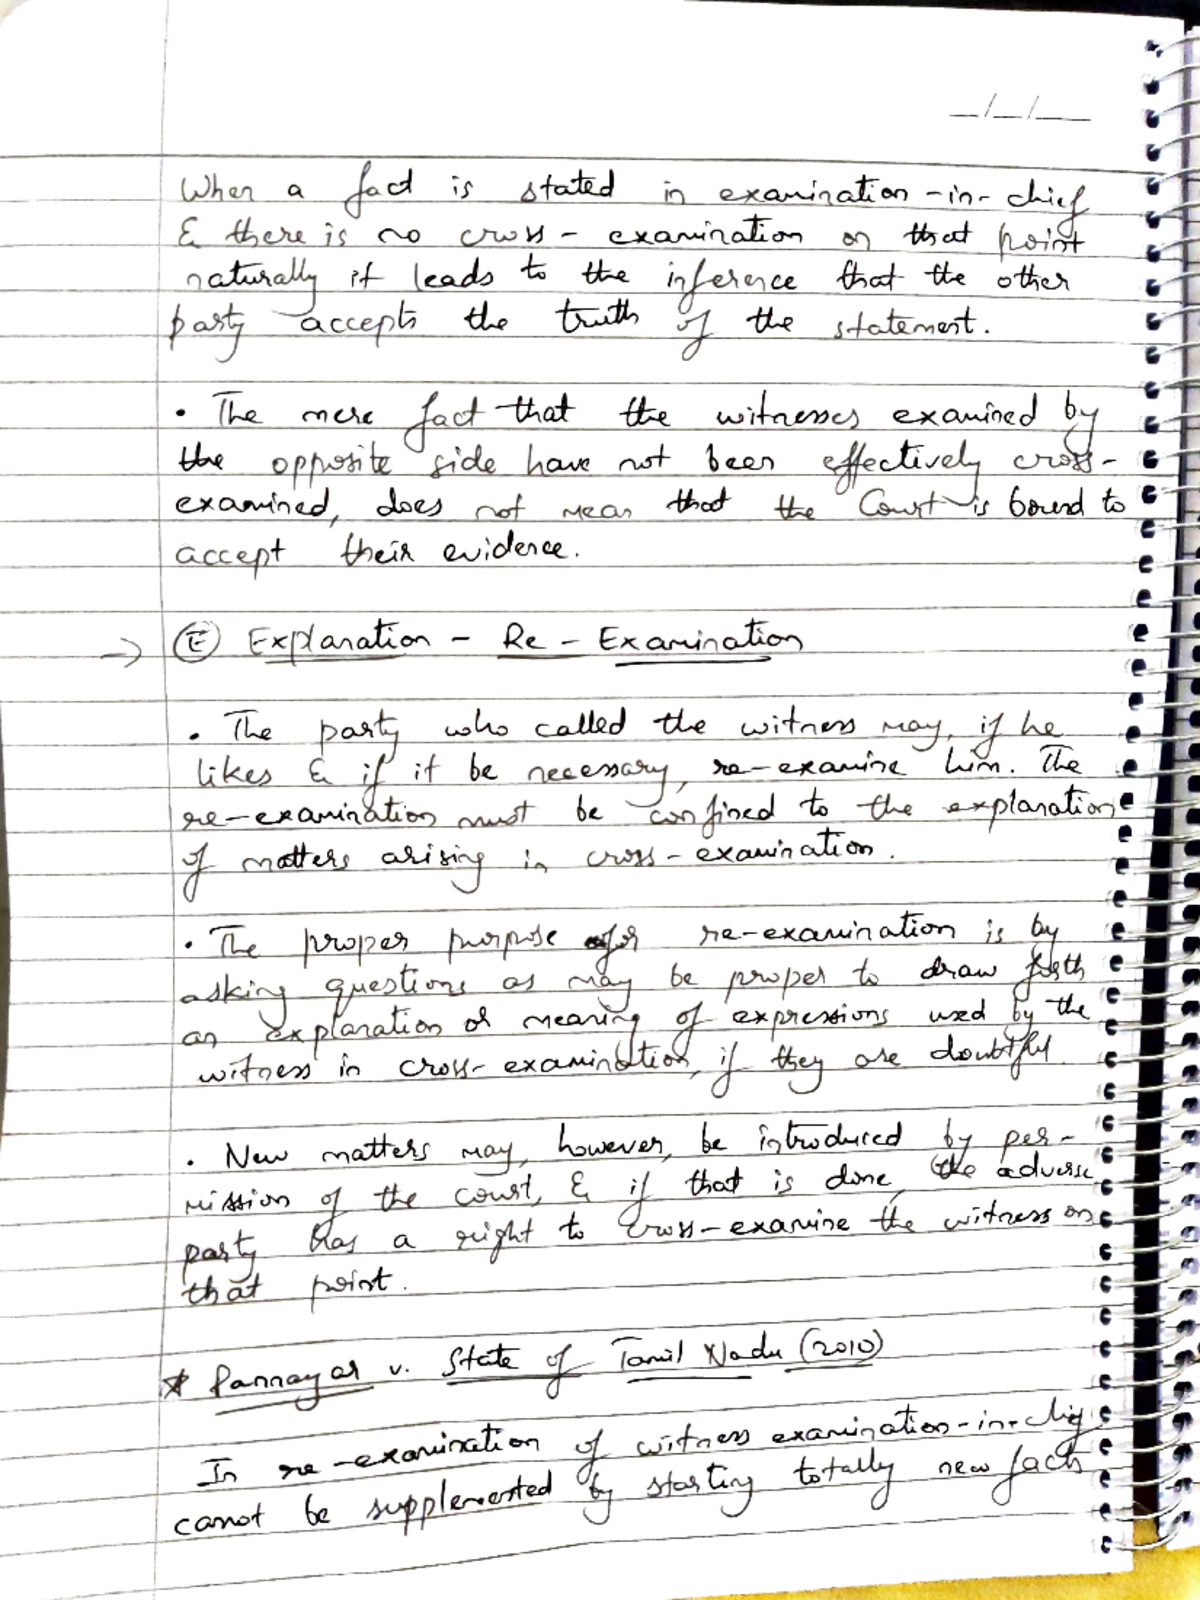 __/__/___
When a fact is stated in examination-in-chief
& there is no cross-examination on that point
naturally it leads to the inference that the other
party accepts the truth of the statement.
• The mere fact that the witnesses examined by
the opposite side have not been effectively cross-
examined, does not mean that the Court is bound to
accept their evidence.
→ (E) Explanation - Re-Examination
• The party who called the witness may, if he
likes & if it be necessary, re-examine him. The
re-examination must be confined to the explanation
of matters arising in cross-examination.
• The proper purpose of re-examination is by
asking questions as may be proper to draw forth
an explanation or meaning of expressions used by the
witness in cross-examination, if they are doubtful.
• New matters may, however, be introduced by per-
mission of the court, & if that is done, the adverse
party has a right to cross-examine the witness on
that point.
* Pannayar v. State of Tamil Nadu (2010)
In re-examination of witness examination-in-chief
cannot be supplemented by starting totally new facts